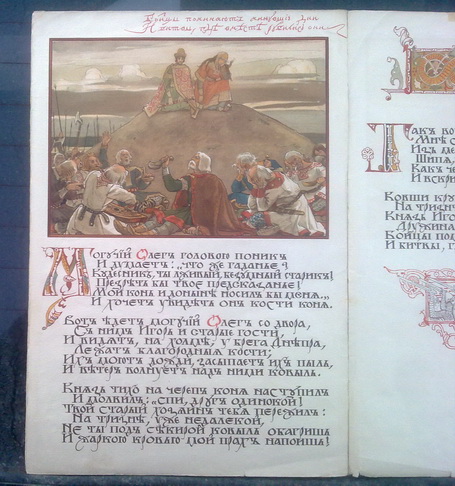 Бойцы поминаютъ минувшіе дни
И битвы, гдѣ вмѣстѣ рубились они
Могучій Олегъ головою поникъ
И думаетъ: „что же гаданье?
Кудесникъ, ты лживый, безумный старикъ!
Презрѣть бы твое предсказанье!
Мой конь и донынѣ носилъ бы меня..."
И хочетъ увидѣть онъ кости коня.
Вотъ ѣдетъ могучій Олегъ со двора,
Съ нимъ Игорь и старые гости,
И видятъ, на холмѣ, у брега Днѣпра,
Лежатъ благородныя кости;
Ихъ моютъ дожди, засыпаетъ ихъ пыль,
И вѣтеръ волнуетъ надъ ними ковыль.
Князь тихо на черепъ коня наступилъ
И молвилъ: „Спи, другъ одинокой!
Твой старый хозяинъ тебя пережилъ:
На тризнѣ, уже недалекой,
Не ты подъ сѣкирой ковыль обагришь
И жаркою кровью мой прахъ напоишь!
Такъ во
Мнѣ с
Изъ ме
Шипя,
Какъ че
И вскри
Ковши кру
На тризн
Князь Иго
Дружина
Бойцы по
И битвы, г